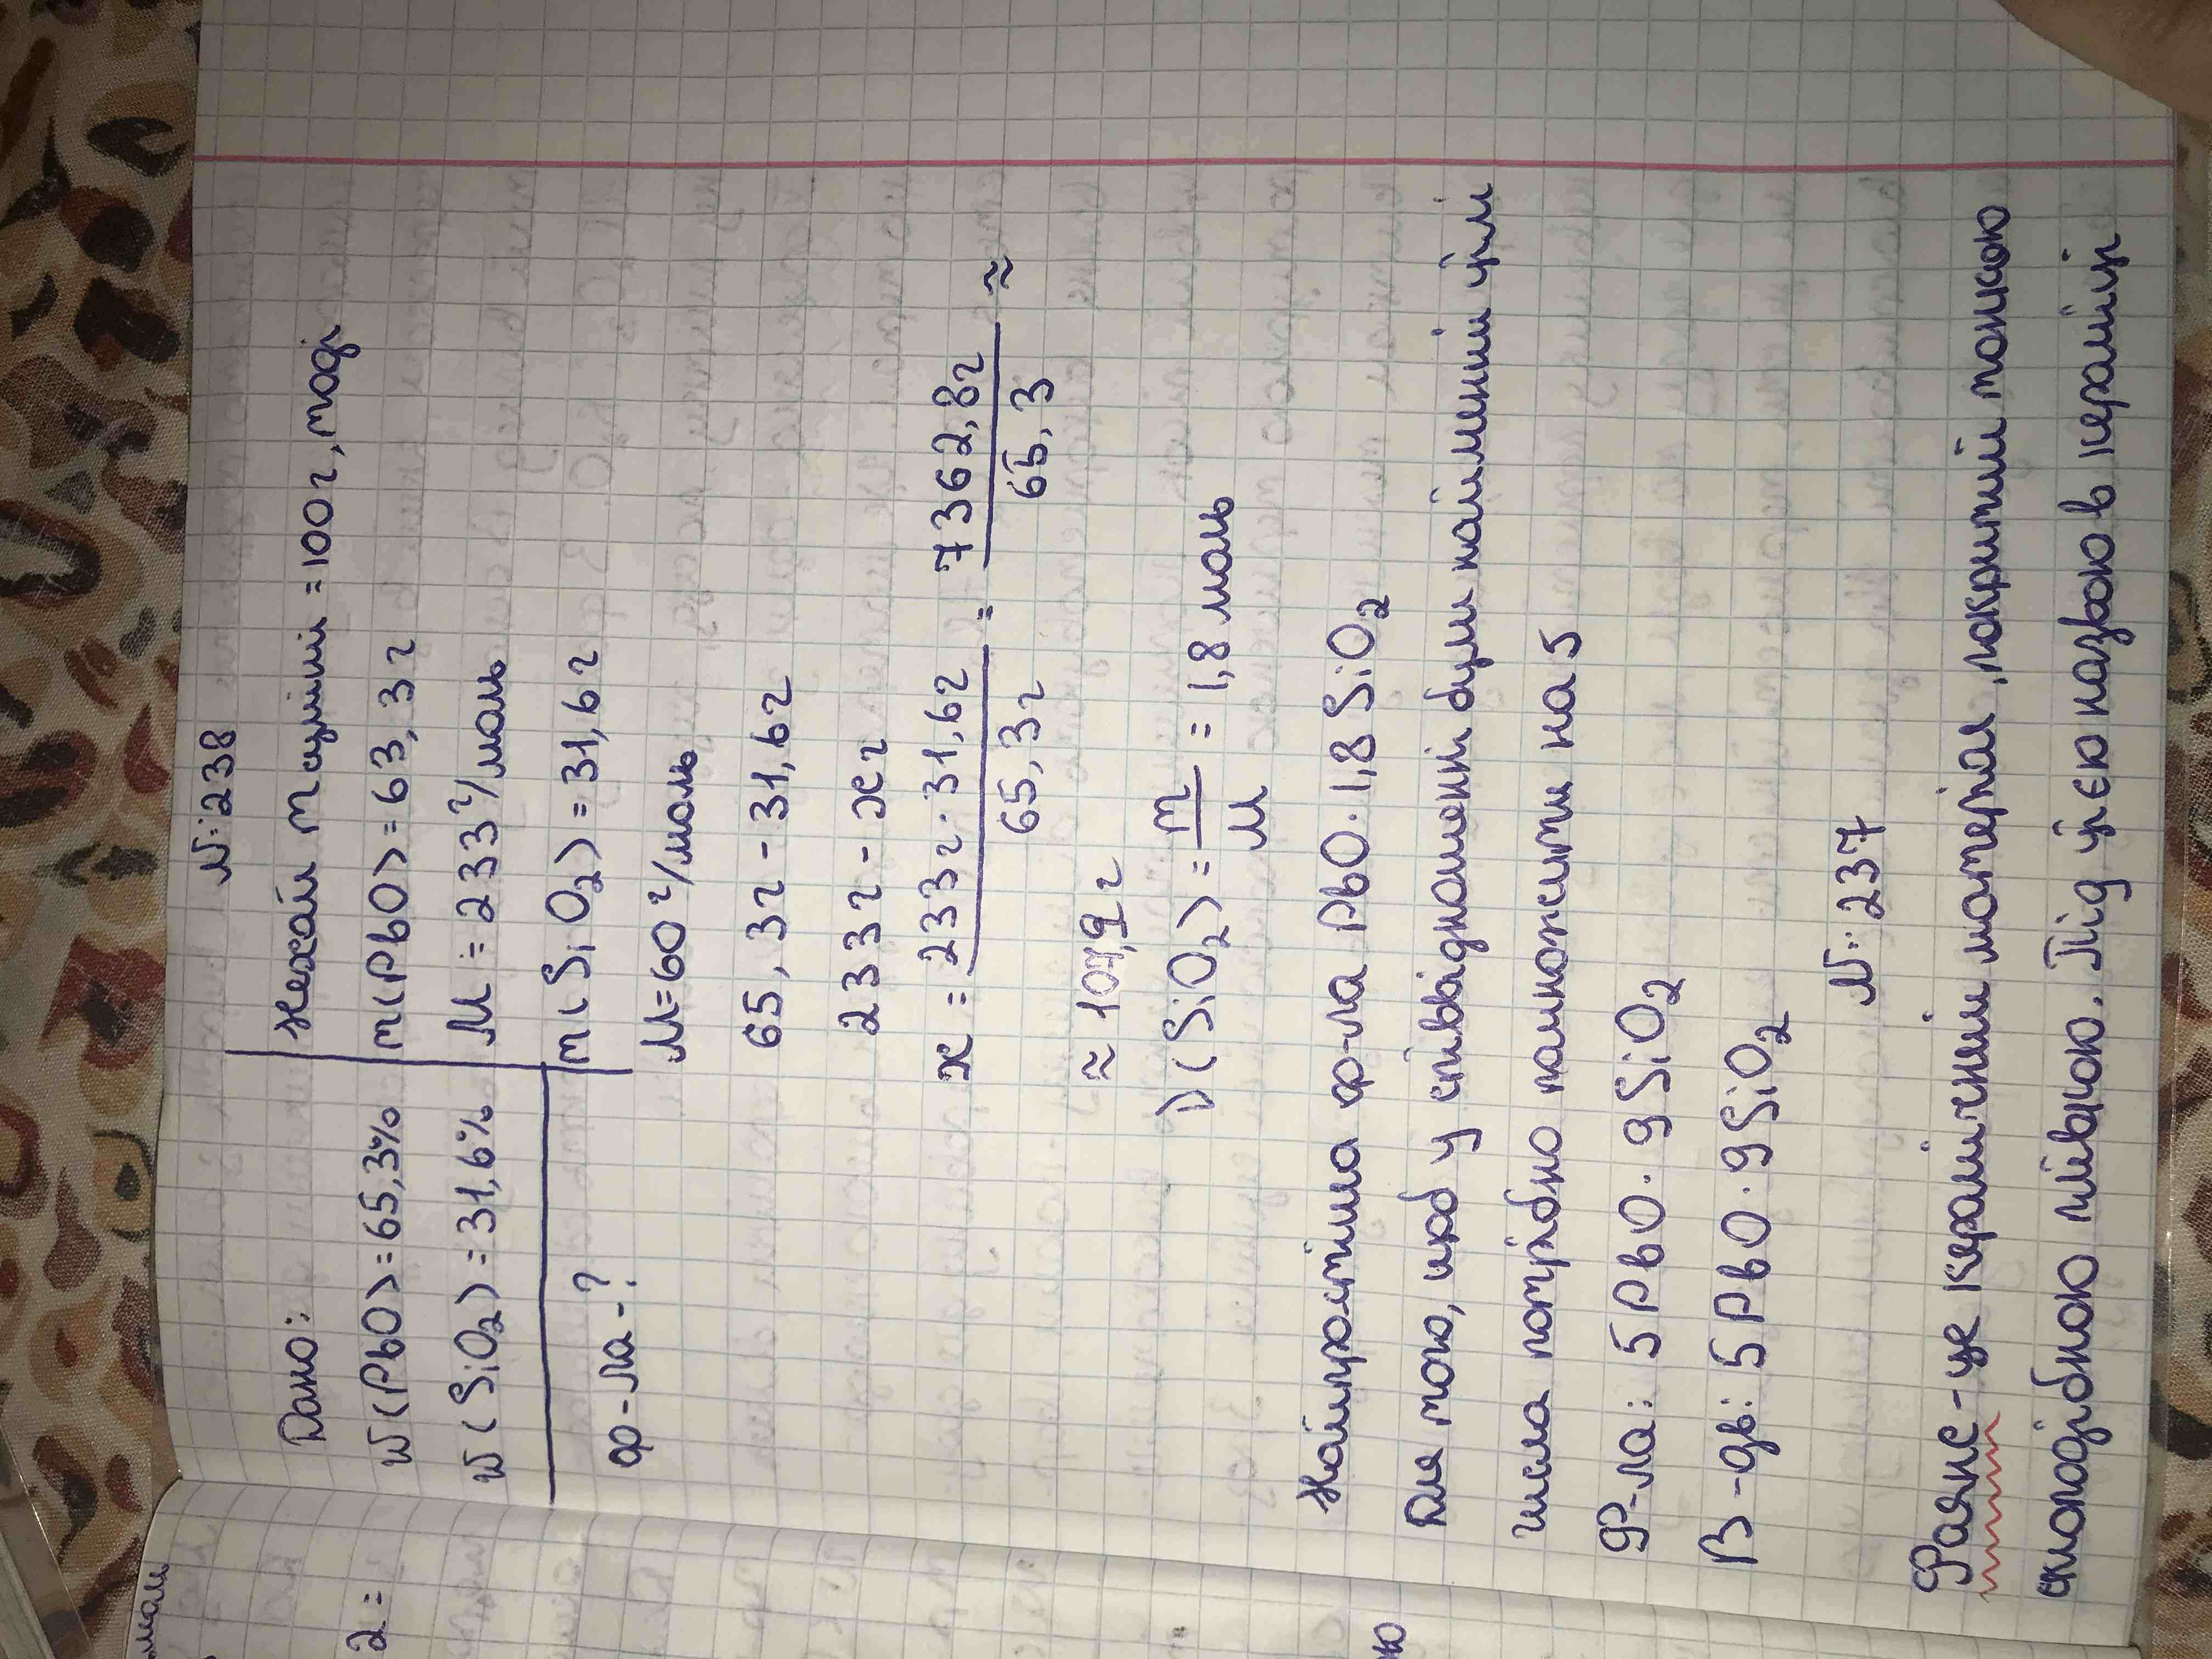 №238
Дано:
Нехай m глазурі = 100г, тоді
w(PbO) = 65,3%
m(PbO) = 63,3г
w(SiO2) = 31,6%
M = 233 г/моль
m(SiO2) = 31,6г
ф-ла-?
M=60 г/моль
65,3г - 31,6г
233г - xг
x = 233г · 31,6г / 65,3г = 7362,8г / 65,3 ≈
≈ 107,9г
ν(SiO2) = m / M = 1,8 моль
Найпростіша ф-ла PbO · 1,8 SiO2
Для того, щоб у співвідношенні були найменші цілі
числа потрібно помножити на 5
Ф-ла: 5 PbO · 9 SiO2
В-дь: 5 PbO · 9 SiO2
№237
Фаянс - це керамічний матеріал, покритий тонкою
склоподібною плівкою. Під цією назвою в кераміці
2 =
ю